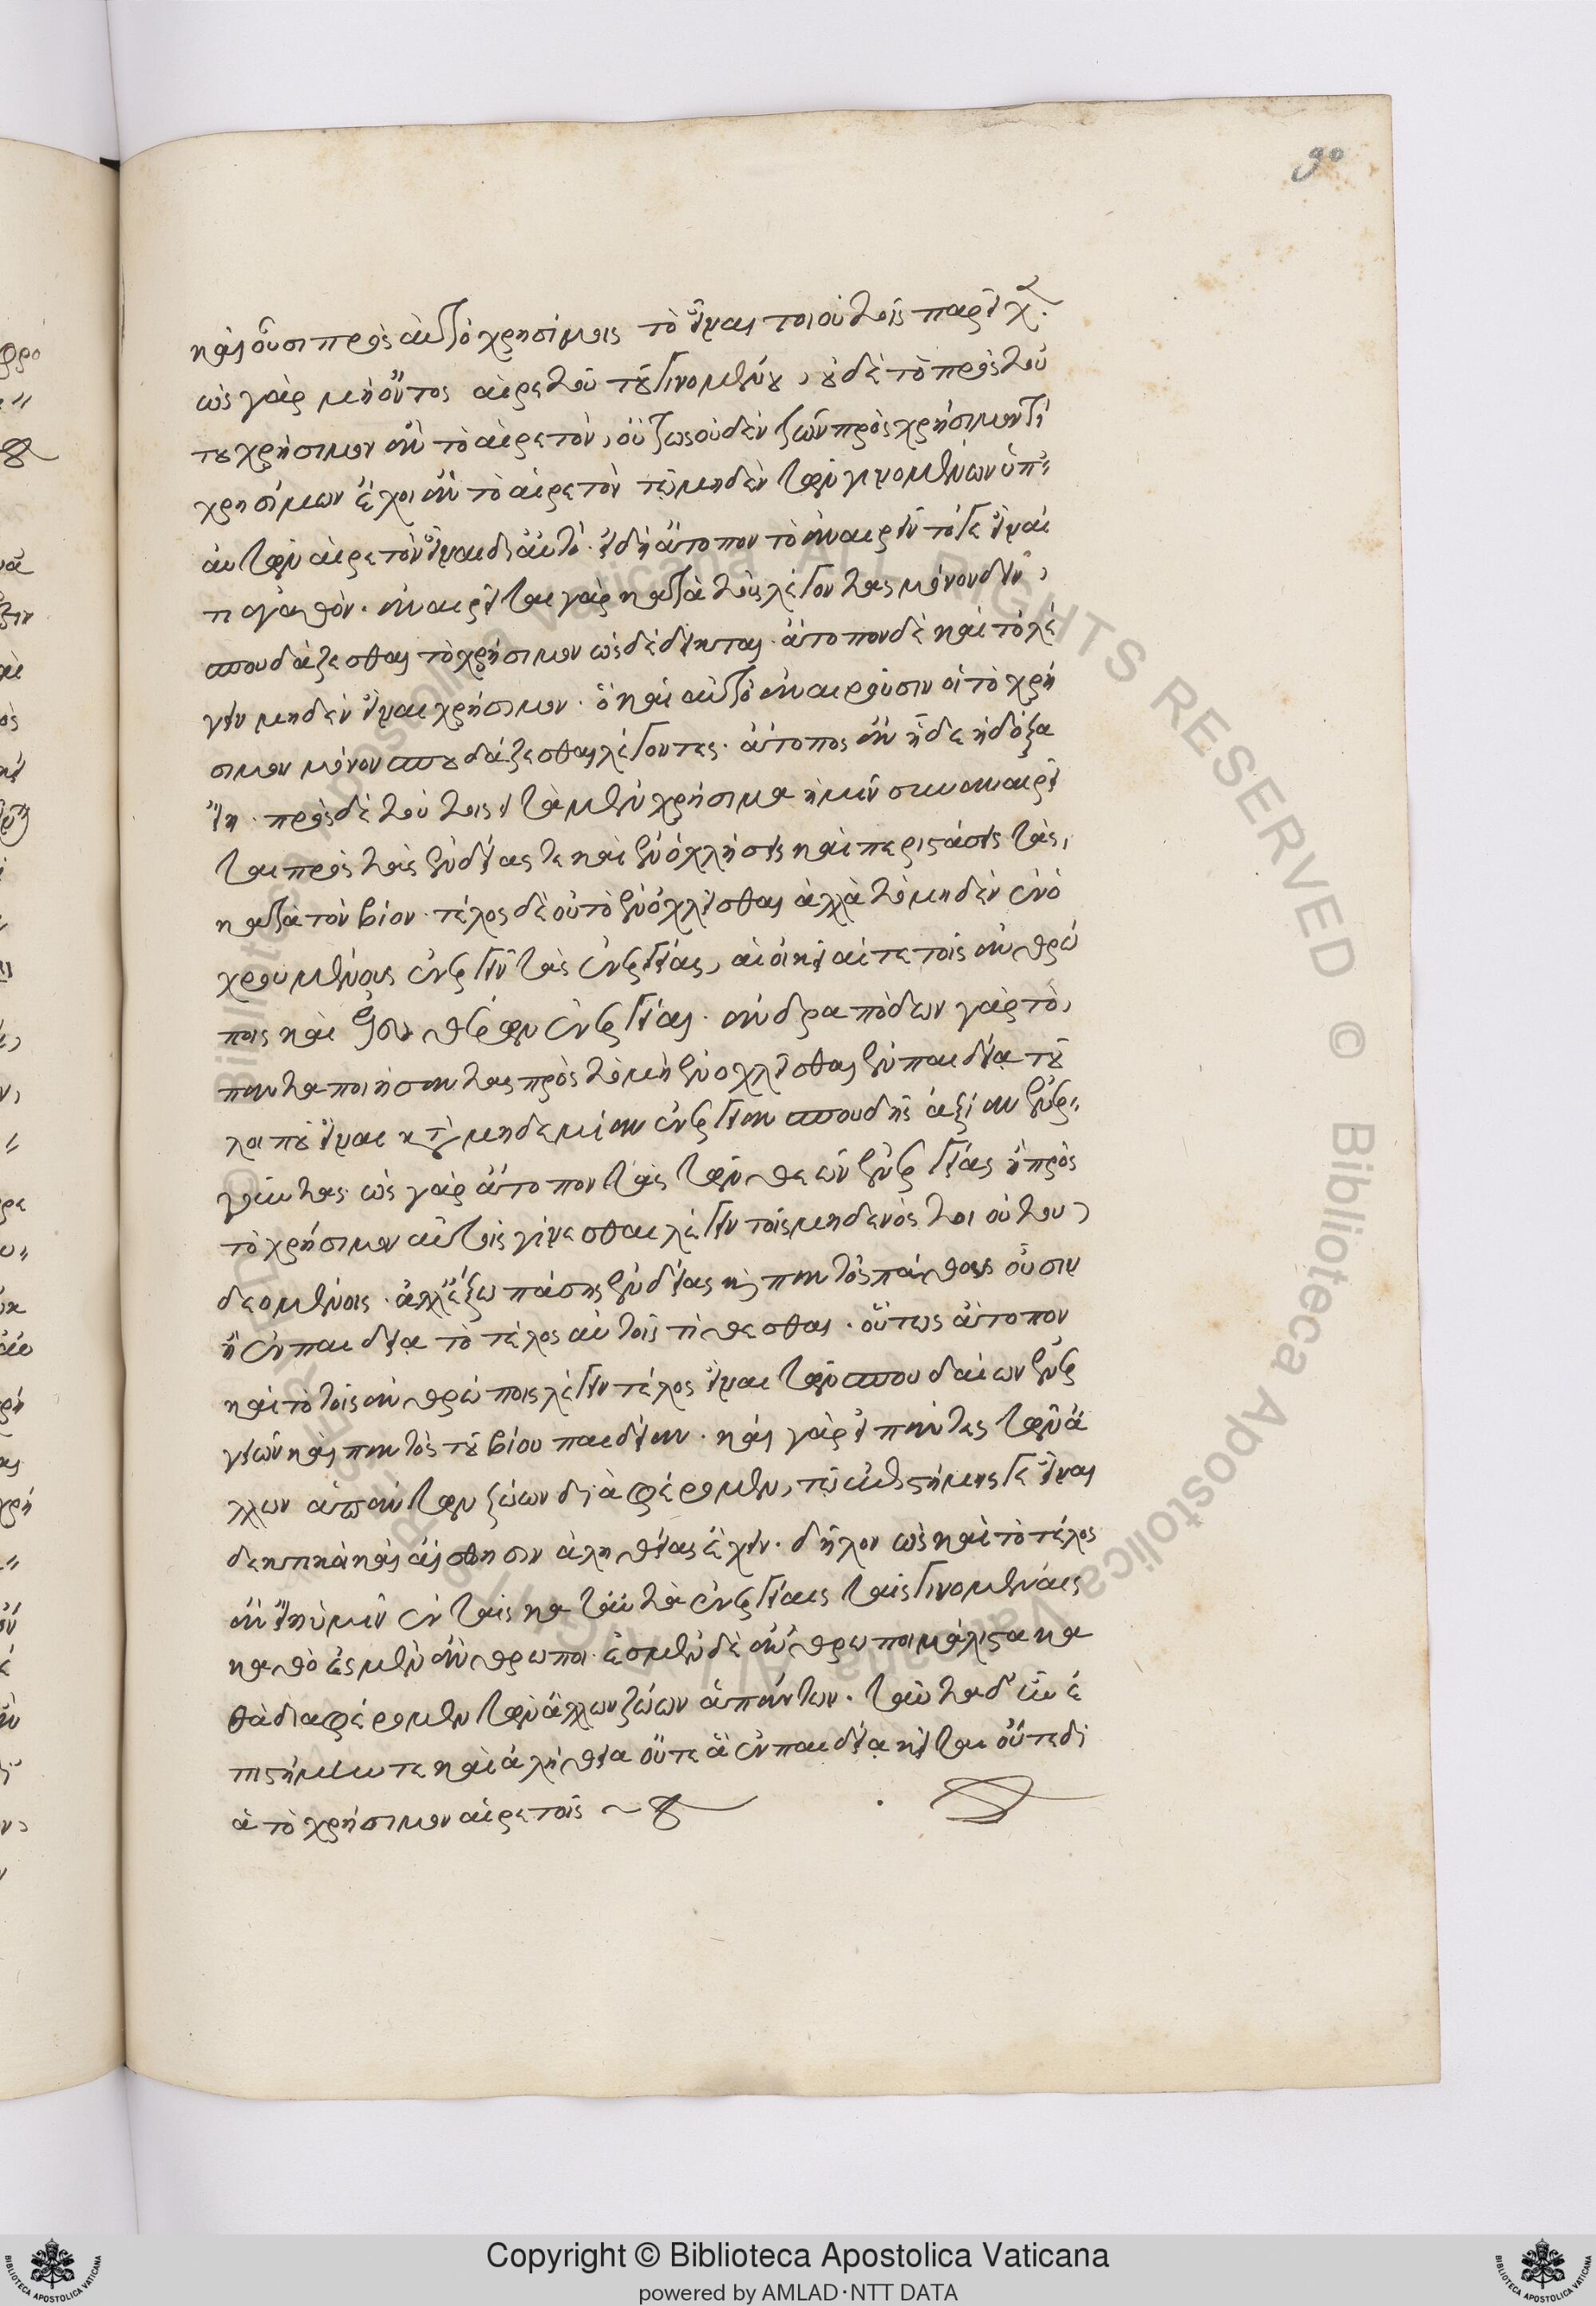 90
καὶ οὖσι πρὸς αὐτὸ χρησίμοις τὸ εἶναι τοιούτοις παρεῖχ.
ὡς γὰρ μὴ ὄντος αἱρετοῦ τοῦ γινομένου, οὐδὲ τὸ πρὸς τού
του χρήσιμον ἂν τὸ αἱρετὸν, οὕτως οὐδὲν τῶν πρὸς χρήσιμόν τι
χρησίμων ἔχοι ἂν τὸ αἱρετὸν τῷ μηδὲν τῶν γινομένων ὑπ'
αὐτῶν αἱρετὸν εἶναι δι' αὐτό. εἰ δὴ ἄτοπον τὸ ἀναιρεῖν τό γε εἶναί
τι ἀγαθόν. ἀναιρεῖται γὰρ κατὰ τοὺς λέγοντας μόνον δεῖν,
σπουδάζεσθαι τὸ χρήσιμον ὡς δέδεικται. ἄτοπον δὲ καὶ τὸ λέ
γειν μηδὲν εἶναι χρήσιμον. ὃ καὶ αὐτὸ ἀναιροῦσιν οἱ τὸ χρή
σιμον μόνον σπουδάζεσθαι λέγοντες. ἄτοπος ἂν ἥδε ἡ δόξα
εἴη. πρὸς δὲ τούτοις εἰ τὰ μὲν χρήσιμα ἡμῖν συναιρεῖ
ται πρὸς τὰς ἐνδείας τε καὶ ἐνοχλήσεις καὶ περιστάσεις τὰς,
κατὰ τὸν βίον. τέλος δὲ οὐ τὸ ἐνοχλεῖσθαι ἀλλὰ τὸ μηδὲν ἐνο
χλουμένους ἐνεργεῖν τὰς ἐνεργείας, αἳ οἰκεῖαί τε τοῖς ἀνθρώ
ποις καὶ ἐλευθέρων ἐνέργειαι. ἀνδραπόδων γὰρ τὸ,
πάντα ποιήσαντας πρὸς τὸ μὴ ἐνοχλεῖσθαι ἐν παιδείᾳ τοῦ
λοιποῦ εἶναι κατὰ μηδεμίαν ἐνέργειαν σπουδῆς ἀξίαν ἐνερ
γοῦντας. ὡς γὰρ ἄτοπον τὰς τῶν θεῶν ἐνεργείας ἢ πρὸς
τὸ χρήσιμον αὐτοῖς γίνεσθαι λέγειν τοῖς μηδενὸς τοιούτου,
δεομένοις. ἀλλ' ἔξω πάσης ἐνδείας καὶ παντὸς πάθους οὖσιν
ἢ ἐν παιδείᾳ τὸ τέλος αὐτοῖς τίθεσθαι. οὕτως ἄτοπον
καὶ τὸ τοῖς ἀνθρώποις λέγειν τέλος εἶναι τῶν σπουδαίων ἐνερ
γειῶν καὶ παντὸς τοῦ βίου παιδείαν. καὶ γὰρ εἰ πάντες τῶν ἄ
λλων ἁπάντων ζῴων διαφέρομεν, τῷ ἐπιστήμης γε εἶναι
δεκτικὰ καὶ αἴσθησιν ἀληθείας ἔχειν. δῆλον ὡς καὶ τὸ τέλος
ἂν εἴη ὑμῖν ἐν ταῖς κατὰ ταῦτα ἐνεργείαις ταῖς γινομέναις
καθό ἐσμεν ἄνθρωποι. ἐσμὲν δὲ ἄνθρωποι μάλιστα κα
θὰ διαφέρομεν τῶν ἄλλων ζῴων ἁπάντων. ταῦτα δ' ἦν ἐ
πιστήμη τε καὶ ἀλήθεια οὔτε ἃ ἐν παιδείᾳ κεῖται οὔτε δι
ὰ τὸ χρήσιμον αἱρετοῖς